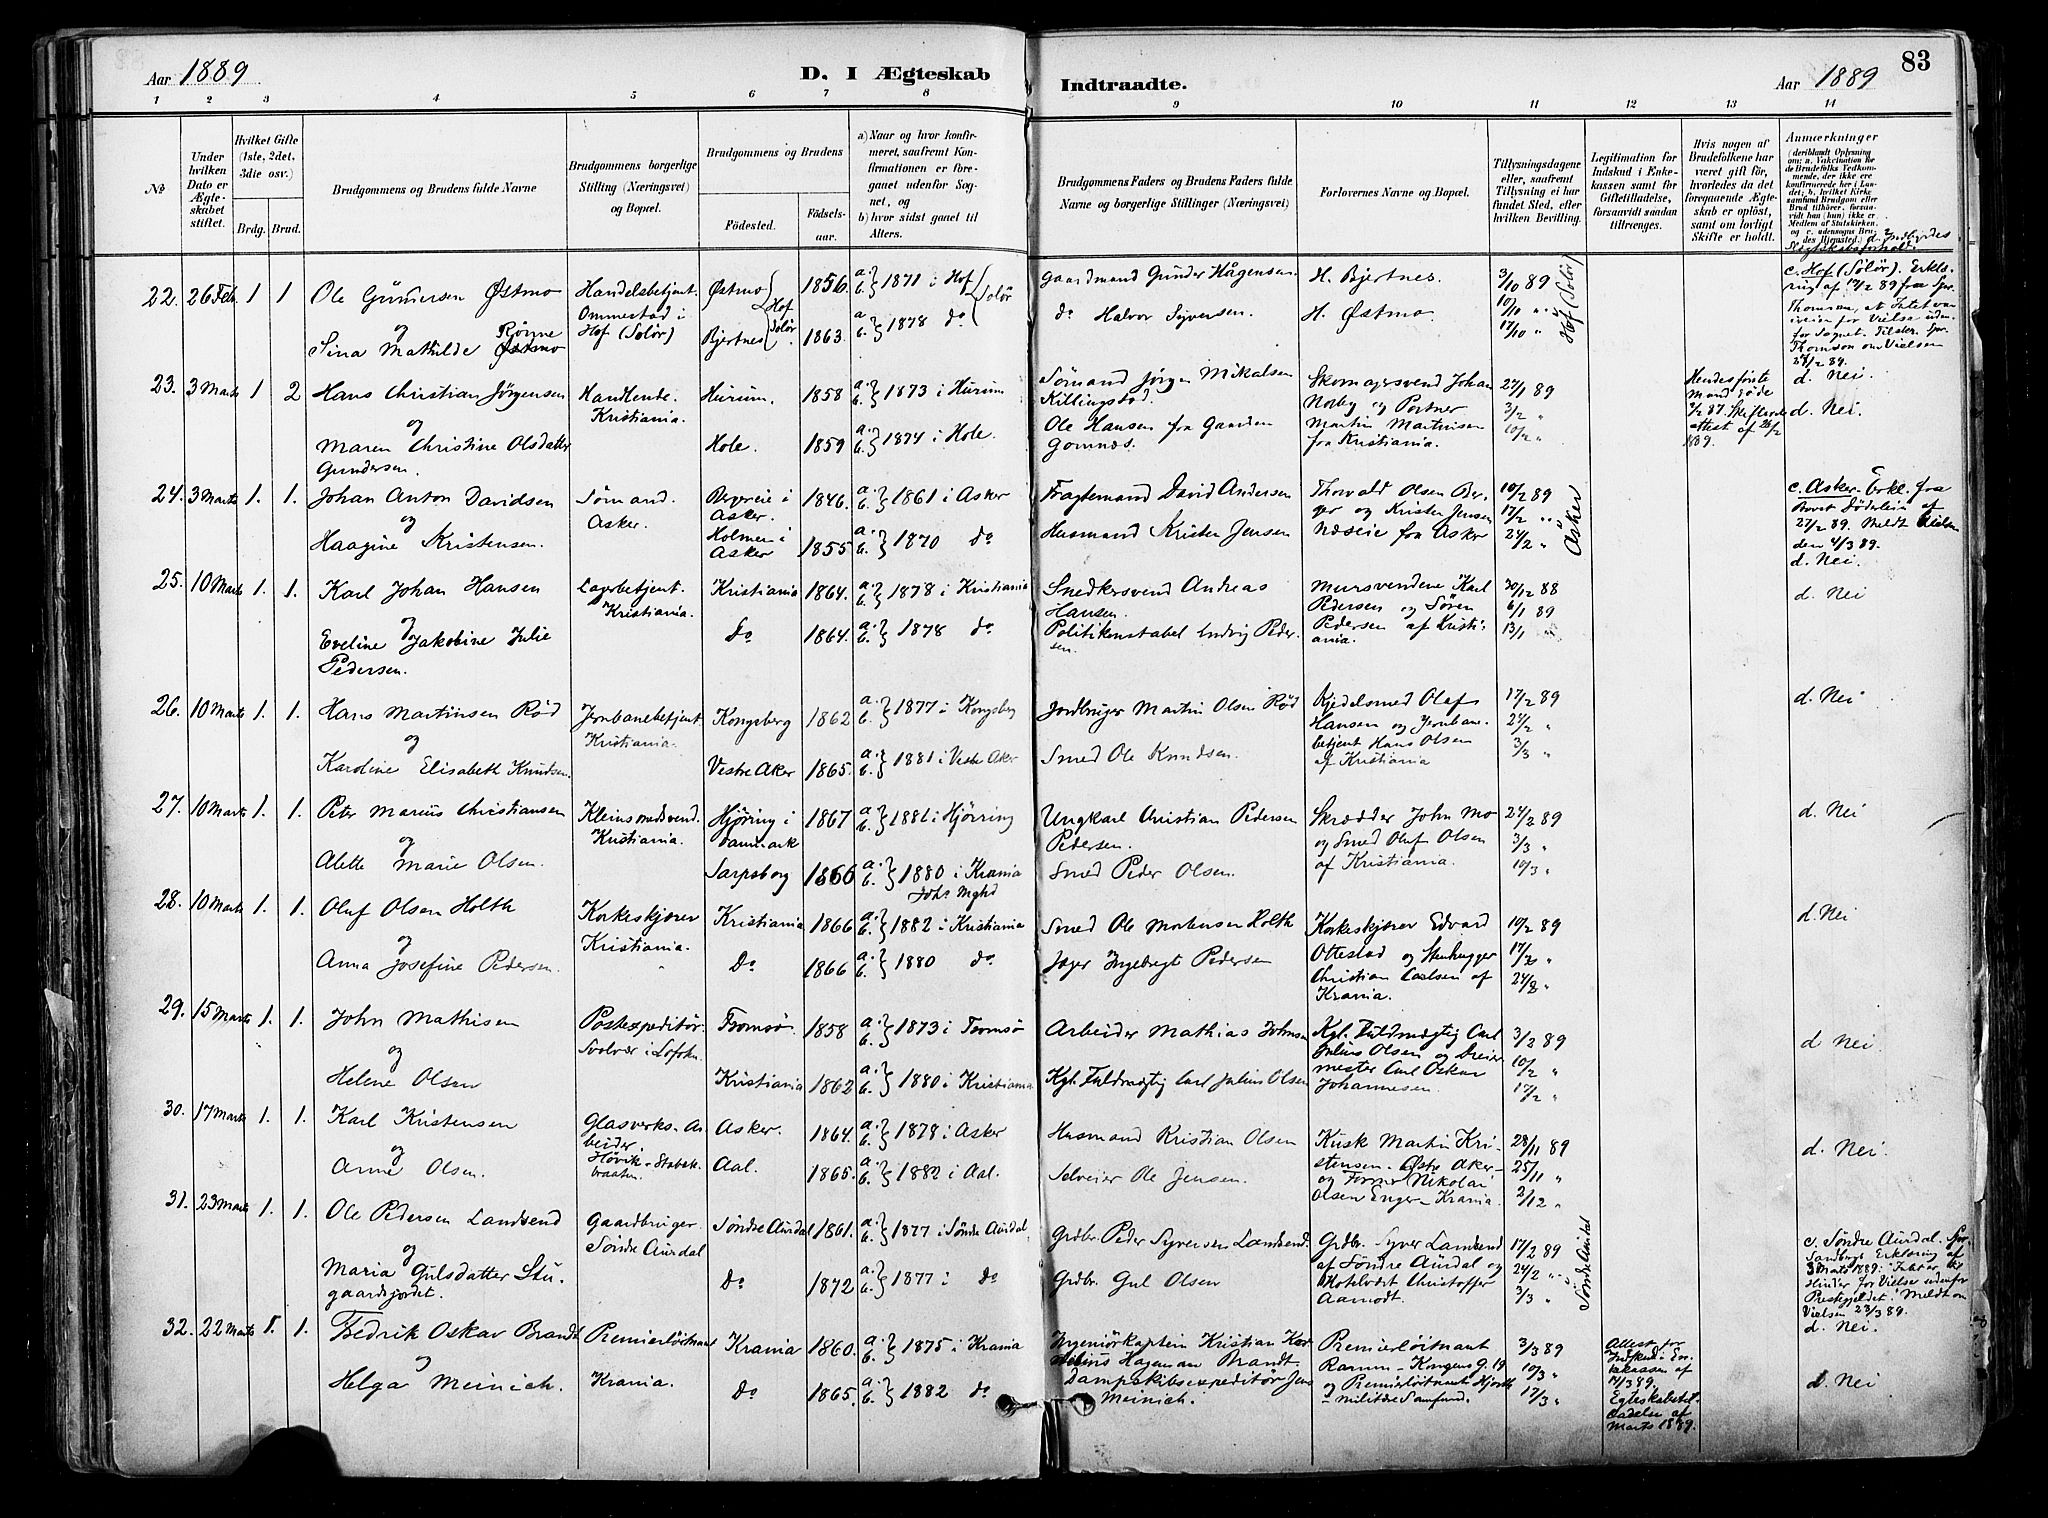 Aar 1889
D. I Ægteskab
Indtraadte.
Aar 1889
83
1 2 3 4 5 6 7 8 9 10 11 12 13 14
No
Under hvilken Dato er Ægteskabet stiftet.
Hvilket Gifte (1ste, 2det, 3die osv.)
Brdg. Brud.
Brudgommens og Brudens fulde Navne
Brudgommens borgerlige Stilling (Næringsvei) og Bopæl.
Brudgommens og Brudens
Födested. Födselsaar.
a) Naar og hvor konfirmeret, saafremt Konfirmationen er foregaaet udenfor Sognet, og
b) hvor sidst gaaet til Alters.
Brudgommens Faders og Brudens Faders fulde Navne og borgerlige Stillinger (Næringsvei)
Forlovernes Navne og Bopæl.
Tillysningsdagene eller, saafremt Tillysning ei har fundet Sted, efter hvilken Bevilling.
Legitimation for Indskud i Enkekassen samt for Giftetilladelse, forsaavidt saadan tiltrænges.
Hvis nogen af Brudefolkene har været gift för, hvorledes da det foregaaende Ægteskab er oplöst, samt om lovligt Skifte er holdt.
Anmærkninger (deriblandt Oplysning om: a. Vakcination for de Brudefolks Vedkommende, der ikke ere konfirmerede her i Landet; b. hvilket Kirkesamfund Brudgom eller Brud tilhörer, forsaavidt han (hun) ikke er Medlem af Statskirken, og c. udensogns Brudes Hjemsted.) d. Indbyrdes Slegtskabsforhold.
22. 26 Feb. 1 1 Ole Gundersen Østmo Handelsbetjent. Ommestad i Hof (Solör) Østmo Hof Solör 1856. a. b. 1871 i Hof Solör Gaardmand Gunder Hågensen. H. Bjertnes. 3/10 89 Hof (Solör)
og Sina Mathilde Rönne Østmo Bjertnes 1863. a b. 1878 do do Halvor Syversen. H. Østmo. 10/10 " 17/10 "
c. Hof (Solör). Erklæring af 17/2 89 fra Spr. Thomson, at Intet var iveien for Vielse udenfor Sognet. Tilster. Spr. Thomson om Vielsen 27/2 89.
23. 3 Marts 1 2 Hans Christian Jörgensen Handlende. Kristiania. Hurum. 1858 a. b. 1873 i Hurum Sömand Jörgen Mikalsen Killingstad. Skomagersvend Johan Norby og Portner Martin Martinsen fra Kristiania. 27/1 89 3/2 " 10/2 " Hendes förste Mand döde 2/2 87. Skifteretsattest af 26/2 1889. d. Nei.
og Maren Christine Olsdatter Gundersen. Hole. 1859 a. b. 1874 i Hole. Ole Hansen fra Gaarden Gomnæs. d. Nei.
24. 3 Marts 1. 1. Johan Anton Davidsen Sömand. Asker. Bergreie i Asker. 1846. a. b. 1861 i Asker Fragtemand David Andersen Thorvald Olsen Berger og Krister Jensen Næseie fra Asker 10/2 89 17/2 " 24/2 " Asker
og Haagine Kristensen. Holmen i Asker 1855 a. b. 1870 do Husmand Krister Jensen
c. Asker. Erkl. fra Provst Söderlein af 27/2 89. Meldt Vielsen den 4/3 89. d. Nei.
25. 10 Marts 1. 1. Karl Johan Hansen Lagerbetjent. Kristiania. Kristiania 1864. a. b. 1878 i Kristiania Snedkersvend Andreas Hansen. Mursvendene Karl Pedersen og Sören Pedersen af Kristiania. 30/12 88 6/1 89 13/1 d. Nei
og Eveline Jakobine Julie Pedersen. Do 1864. a. b. 1878 do Politikonstabel Ludvig Pedersen.
26. 10 Marts 1. 1. Hans Martinsen Röd Jernbanebetjent Kristiania. Kongsberg 1862 a. b. 1877 i Kongsberg Jordbruger Martin Olsen Röd Kjedelsmed Olaf Hansen og Jernbanebetjent Hans Olsen af Kristiania 17/2 89 24/2 " 3/3 " d. Nei
og Karoline Elisabeth Knudsen. Vestre Aker 1865. a. b. 1881 i Vestre Aker Smed Ole Knudsen.
27. 10 Marts 1. 1. Peter Marius Christiansen Kleinsmedsvend. Kristiania. Hjörring i Danmark 1867 a. b. 1881 i Hjörring Ungkarl Christian Pedersen Pedersen. Skrædder John Mo og Smed Oluf Olsen af Kristiania. 24/2 89 3/3 " 10/3 " d. Nei
og Alette Marie Olsen. Sarpsborg 1866 a. b. 1880 i Krania Johs Mghd Smed Peder Olsen.
28. 10 Marts 1. 1. Oluf Olsen Holth Korkeskjærer Kristiania. Kristiania 1866 a. b. 1882 i Kristiania Smed Ole Mortensen Holth Korkeskjærer Edvard Ottestad og Stenhugger Christian Carlsen af Krania. 10/2 89 17/2 " 24/2 " d. Nei
og Anna Josefine Pedersen. Do 1866 a. b. 1880 do Jæger Ingebrigt Pedersen
29. 15 Marts 1. 1. John Mathisen Postexpeditör Svolvær i Lofoten. Tromsö. 1858 a. b. 1873 i Tromsö Arbeider Mathias Johnsen Kgl. Fuldmægtig Carl Julius Olsen og Dreiermester Carl Oskar Johannesen. 3/2 89 10/2 " 17/2 " d Nei.
og Helene Olsen Kristiania 1862 a. b. 1880 i Kristiania Kgl. Fuldmægtig Carl Julius Olsen
30. 17 Marts 1. 1. Karl Kristensen Glasverks-Arbeider Hövik - Stabækbraaten. Asker. 1864. a. b. 1878 i Asker Husmand Kristian Olsen Kusk Martin Kristensen - Østre Aker - og Former Nikolai Olsen Enger - Krania. 28/11 89 25/11 " 2/12 " d. Nei.
og Anne Olsen. Aal. 1865. a. b. 1882 i Aal. Selveier Ole Jensen.
31. 23 Marts 1. 1. Ole Pedersen Landsend Gaardbruger Söndre Aurdal Söndre Aurdal 1861. a. b. 1877 i Söndre Aurdal. Grdbr. Peder Syversen Landsend. Grdbr. Syver Landsend af Söndre Aurdal og Hotelvært Christoffer Aamodt. 17/2 89 24/2 " 3/3 " Söndre Aurdal
og Maria Gulsdatter Stugaardsjordet. Do 1872 a. b. 1877 i do Grdbr. Gul Olsen
c. Söndre Aurdal. Spr. Sandbergs Erklæring af 3 Marts 1889: "Intet er til Hinder for Vielse udenfor Prestegjeldet." Meldt om Vielsen 23/3 89. d. Nei.
32. 22 Marts 1. 1. Fredrik Oskar Brandt Premierlöitnant Krania. Krania 1860. a. b. 1875 i Krania Ingeniörkaptein Kristian Hageman Brandt. Premierlöitnant Raeum - Kongens G. 19 og Premierlöitnant Hjorth - militære Samfund. 3/3 89 10/3 " 17/3 " Attest for Indskud i Enkekassen af 14/3 89. Egteskabstilladelse af Marts 1889. d. Nei
og Helga Meinich. do 1865. a. b. 1882 do Dampskibsexpeditör Jens Meinich.